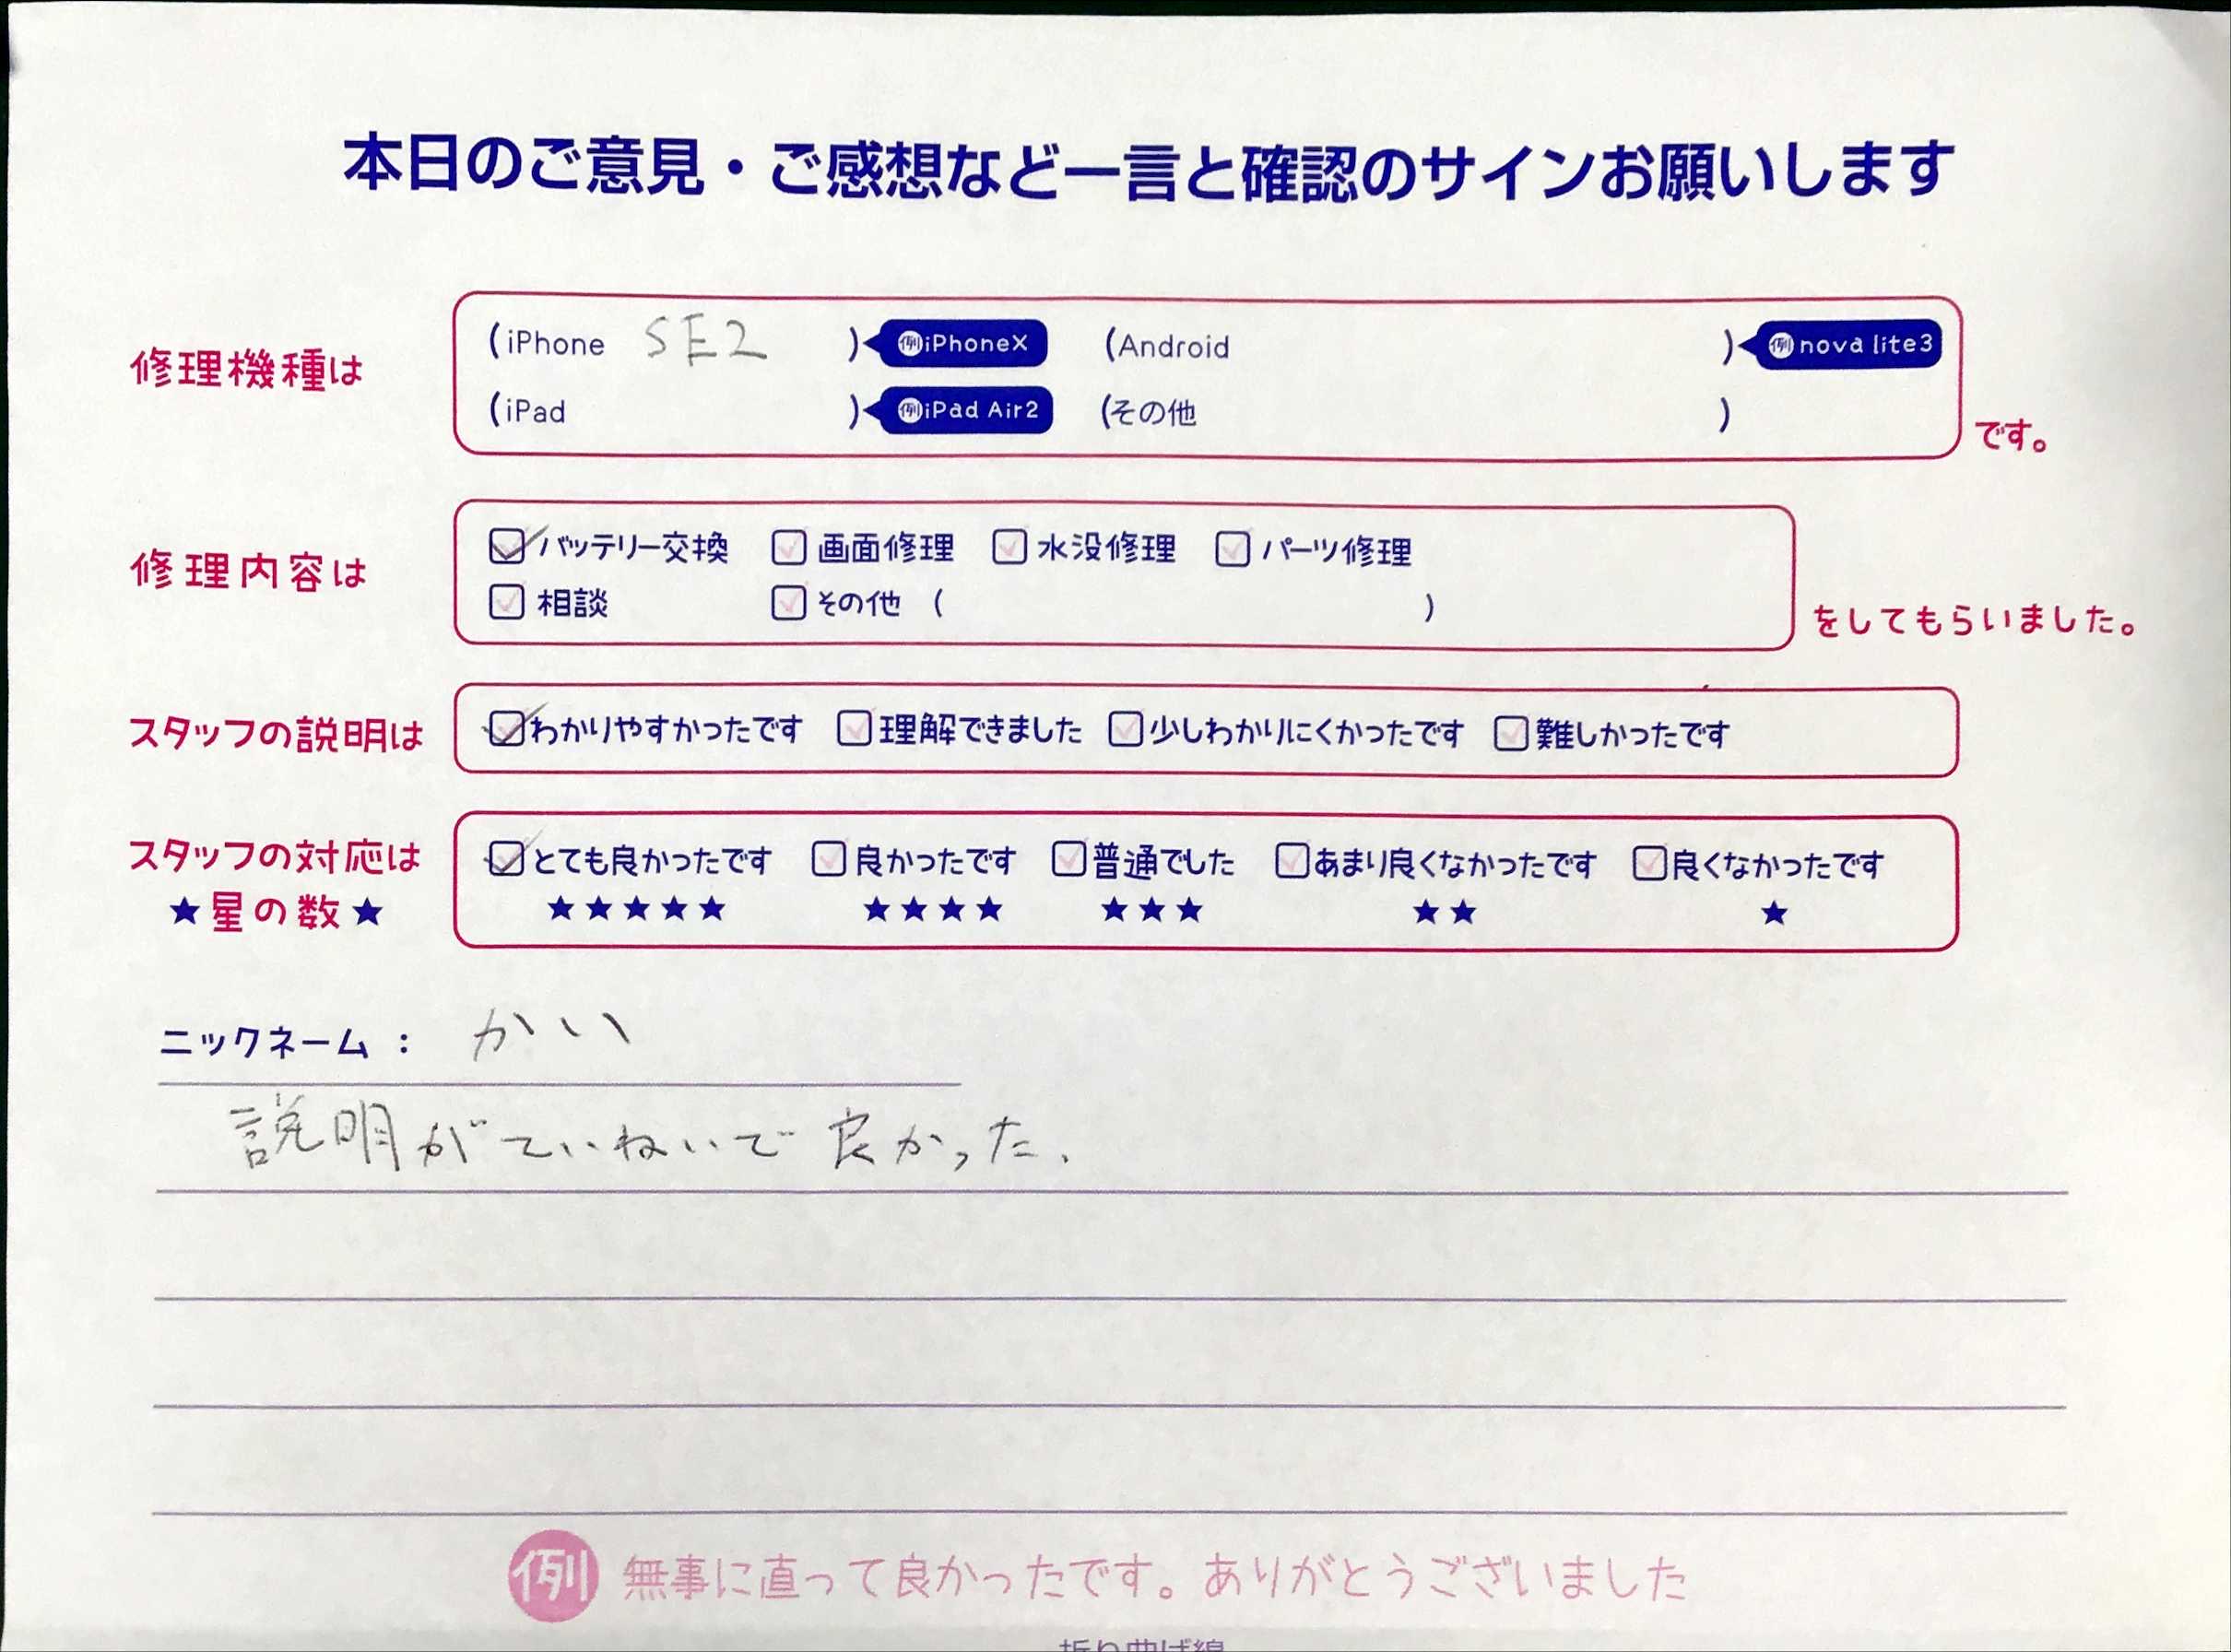 本日のご意見・ご感想など一言と確認のサインお願いします
修理機種は
(iPhone SE2 ) 例iPhoneX (Android ) 例nova lite3
(iPad ) 例iPad Air2 (その他 )
です。
修理内容は
バッテリー交換 画面修理 水没修理 パーツ修理
相談 その他 ( )
をしてもらいました。
スタッフの説明は
わかりやすかったです 理解できました 少しわかりにくかったです 難しかったです
スタッフの対応は
★星の数★
とても良かったです 良かったです 普通でした あまり良くなかったです 良くなかったです
★★★★★ ★★★★ ★★★ ★★ ★
ニックネーム : かい
説明がていねいで良かった、
例 無事に直って良かったです。ありがとうございました
折り曲げ線